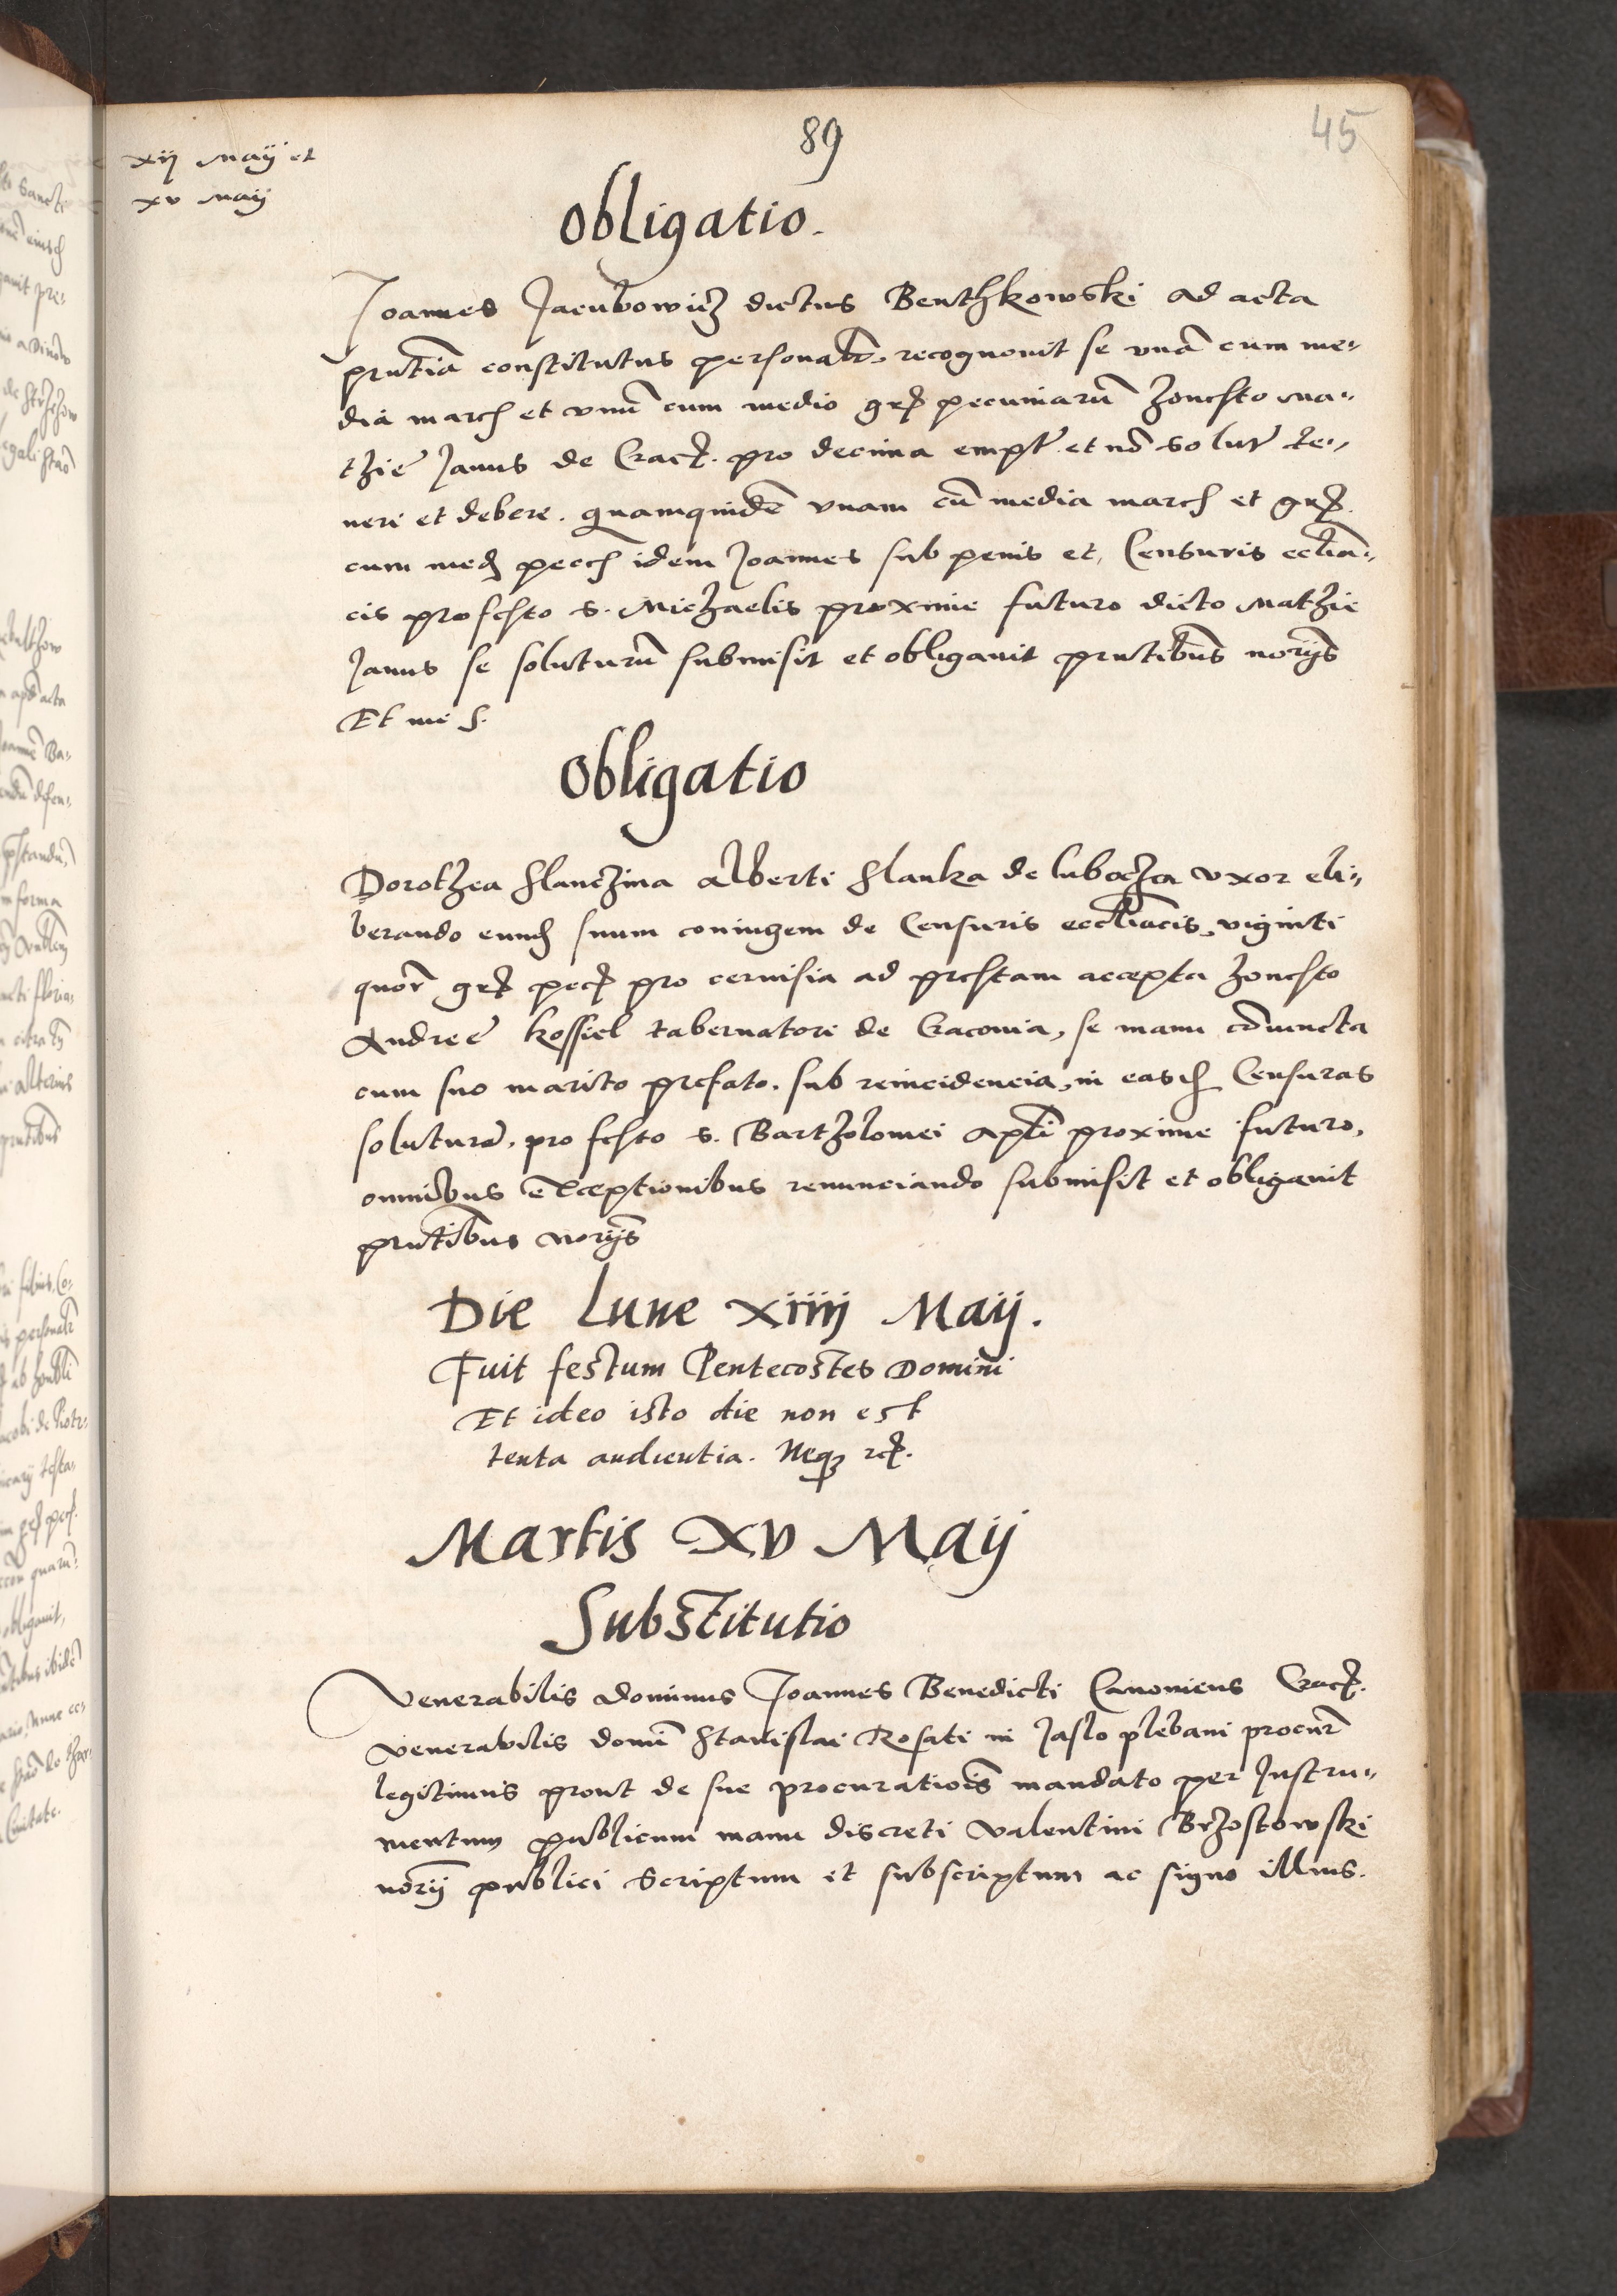 89
45
xij Maij et
xv Maij
Obligatio.
Joannes Jacubowicz dictus Benthkowski ad acta
pñtia constitutus personalr̃. recognouit se vnã cum me-
dia march et vnũ cum medio grȝ pecuniarũ honesto Ma-
thie Janus de Crac̃. pro decima empt̃ et nõ solut̃ te-
neri et debere. quamquidẽ vnam cũ media march et grȝ.
cum med̃ pecc̃ idem Joannes sub penis et Censuris eccl̃ia-
cis pro festo s. Michaelis proxime futuro dicto Mathie
Janus se soluturũ submisit et obligauit pñtibus norijs
Et me S.
Obligatio
Dorothea Slanczina Alberti Slanka de lubocza vxor eli-
berando eund̃ suum coniugem de Censuris eccl̃iacis, viginti
quor̃ grȝ pecȝ pro ceruisia ad prestam accepta honesto
Andree Kossiel tabernatori de Cracouia, se manu cõiuncta
cum suo marito prefato. sub reincidencia, in easd̃ Censuras
soluturã. pro festo s. Bartholomei apl̃i proxime futuro,
omnibus exceptionibus renunciando submisit et obligauit
pñtibus norijs
Die Lune xiiij Maij.
Fuit festum Pentecostes Domini
Et ideo isto die non est
tenta audientia. Neqȝ rc̃.
Martis xv Maij
Substitutio
Venerabilis dominus Joannes Benedicti Canonicus Crac̃.
venerabilis domĩ Stanislai Rosati in Jaslo plebani procur̃
legitimus prout de sue procuratiõis mandato per Instru-
mentum publicum manu discreti Valentini Brzostowski
norij publici scriptum et subscriptum ac signo illius.